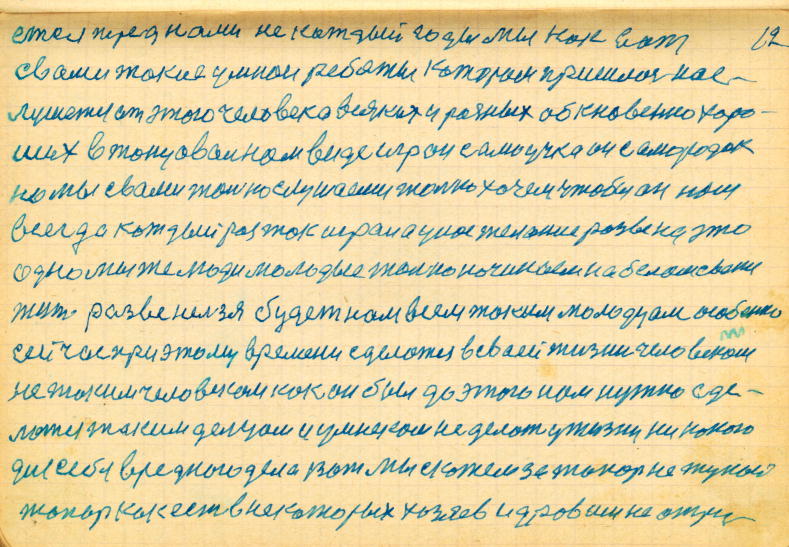 стоя пред нами не каждый годы мы как вот 12
с вами такие умнои ребяты катором пришлоя нас-
лушеть от этого человека всяких и разных обкновенно харо-
ших в танцовалном виде игрои самоучка он самородак
но мы с вами толко слушаем и толко хочем чтобы он нам
всегда каждый раз так играл а у нас желание разве на это
одно мы же люди молодые толко начинаем на белом свети
жить разве нелзя будет нам всем таким молодцам особенно
сейчас при этому времени сделатся в сваей жизни человеком
не таким человеком как он был до этого нам нужно сде-
латся таким делцом и умнеком не делат у жизни ни какого
для себя вредного дела вот мы скажем за тапор не тупой
тапор как ест в некаторых хозяев и дровам не отру-